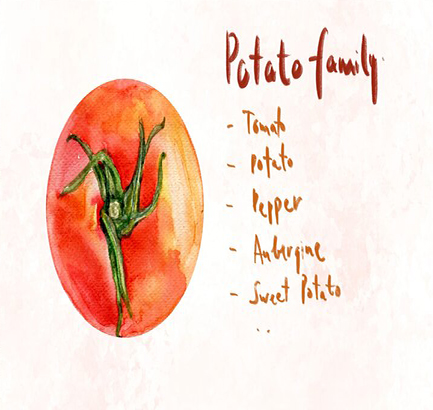 Potato family.
- Tomato
- Potato
- Pepper
- Aubergine
- Sweet Potato
..